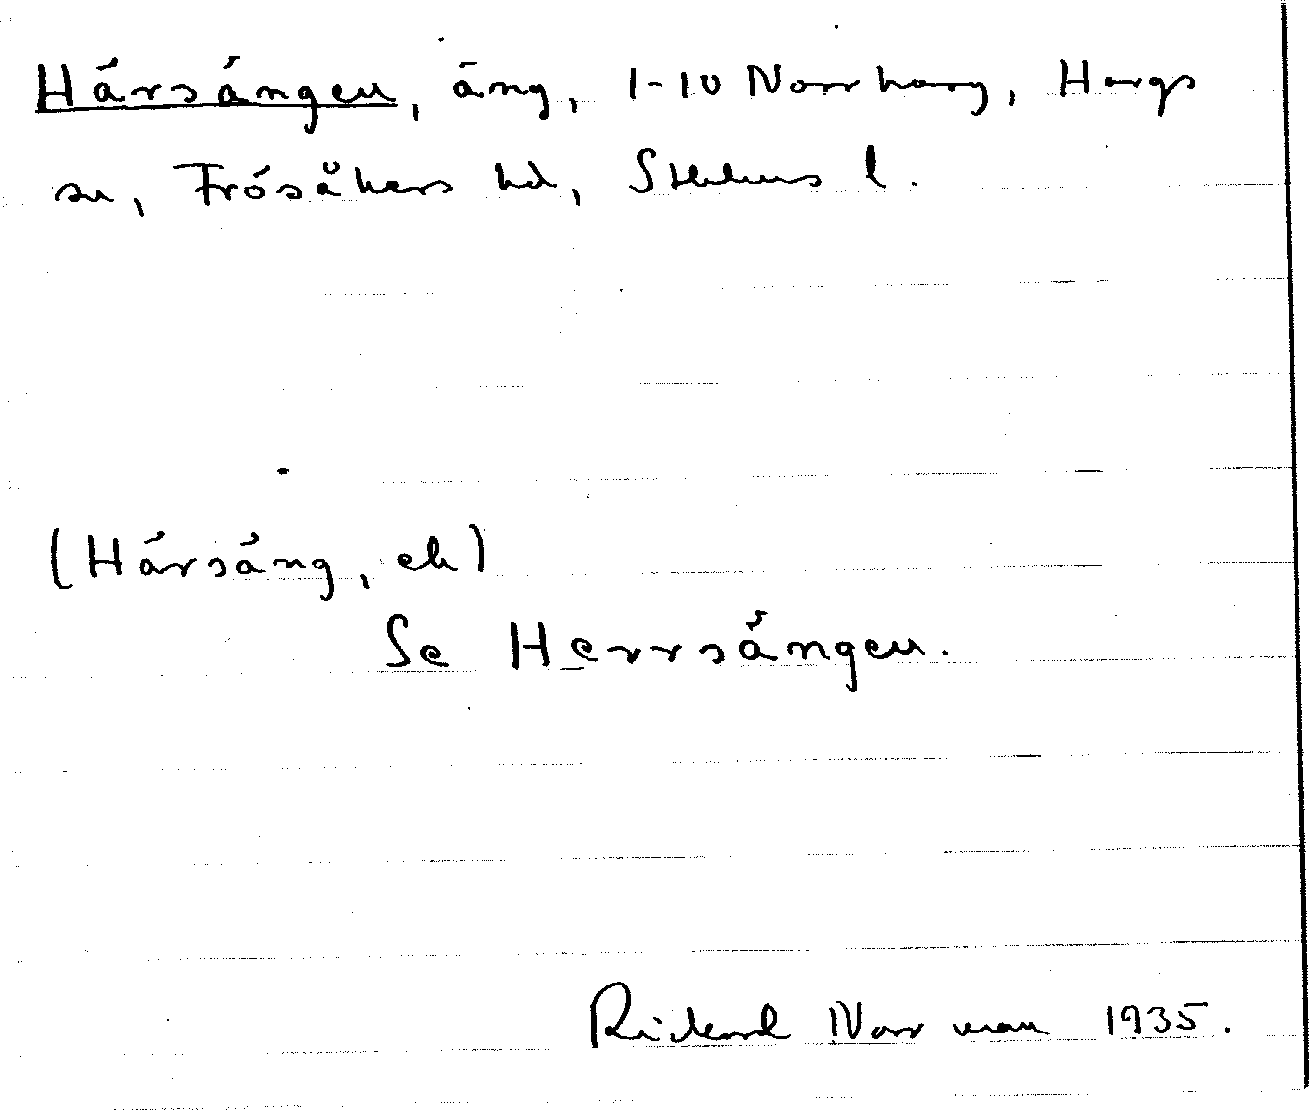 Härsängen, äng, 1-10 Norrharg, Hargs
sn, Frösåkers hd, Sthlms l.
(Härsäng, ek)
Se Herrsängen.
Rickard Norrman 1935.